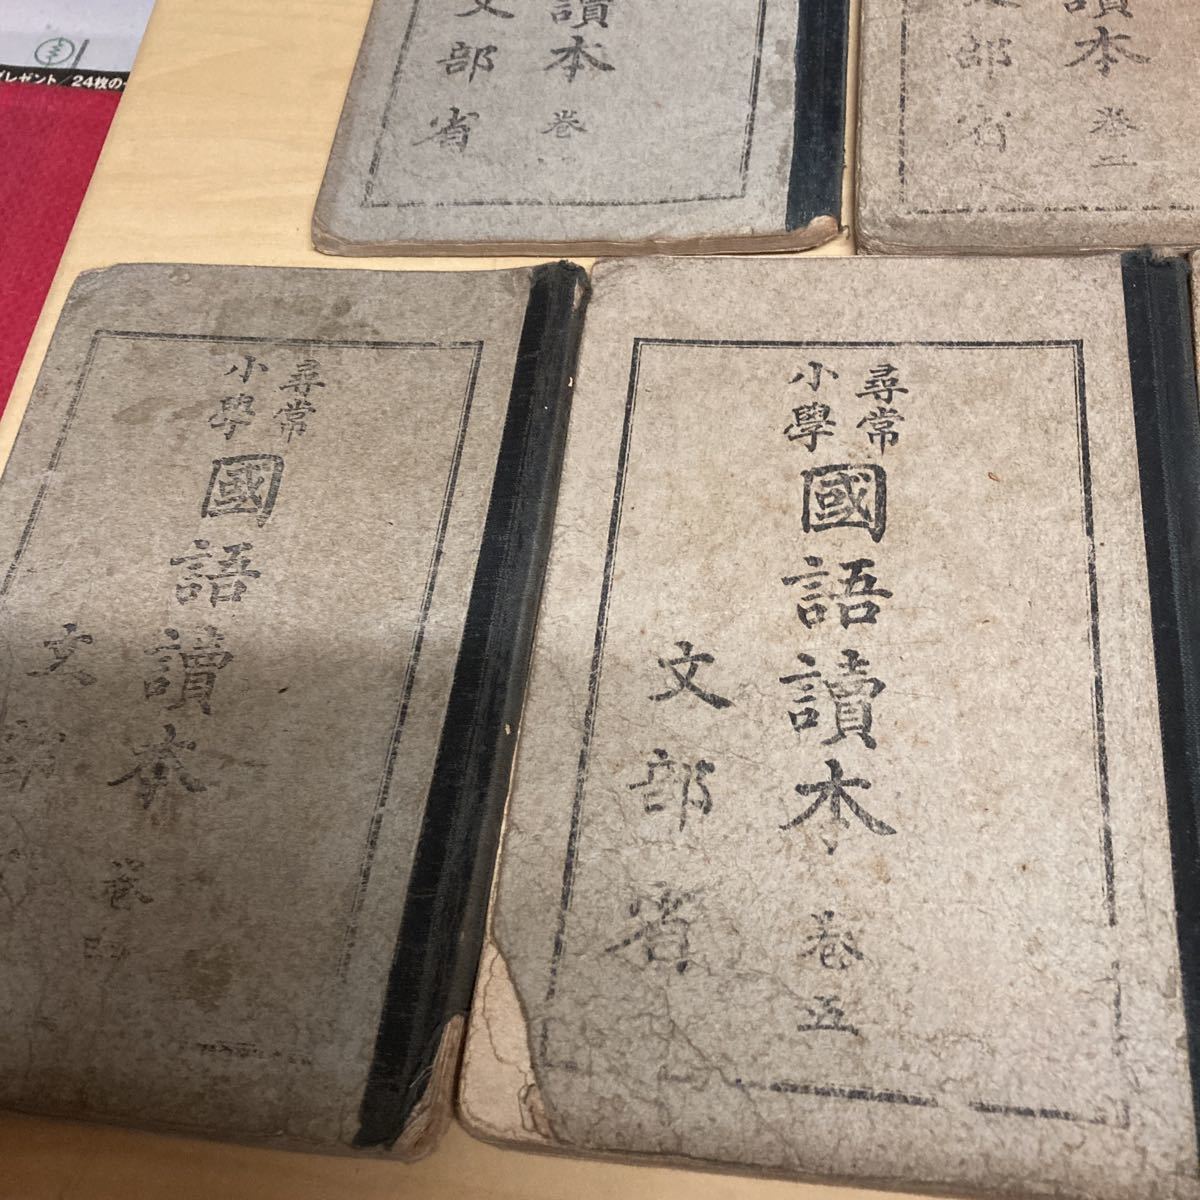 レゼント/24枚の
讀本 巻一
文部省
讀本 巻二
文部省
尋常
小學
國語讀本 巻四
文部
尋常
小學
國語讀本 巻五
文部省